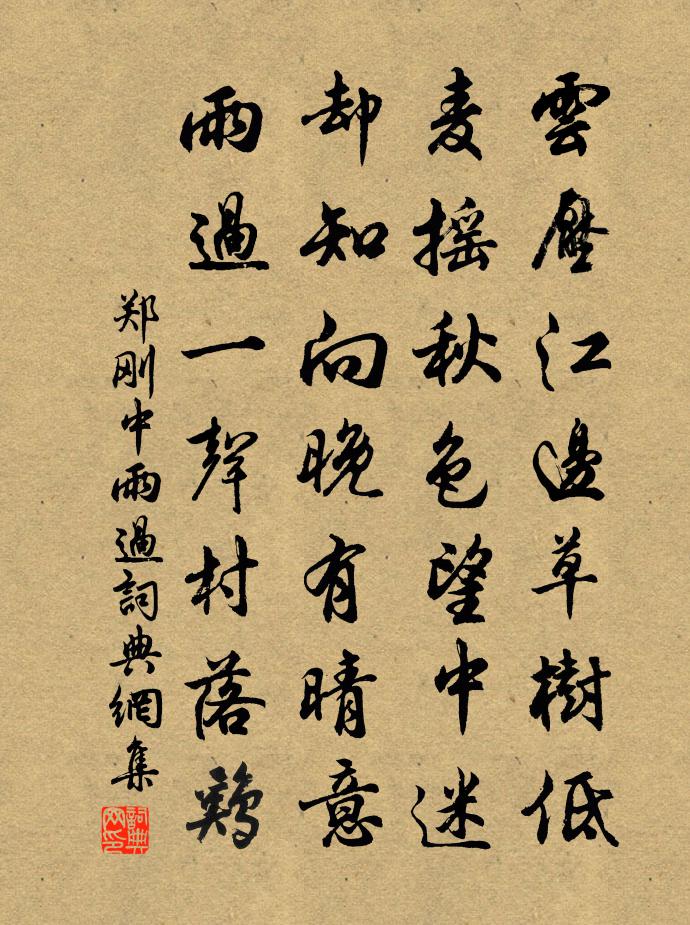 雲壓江邊草樹低
麦摇秋色望中迷
却知向晚有晴意
雨過一聲村落鷄
郑刚中雨過詞典網集
詞典网印